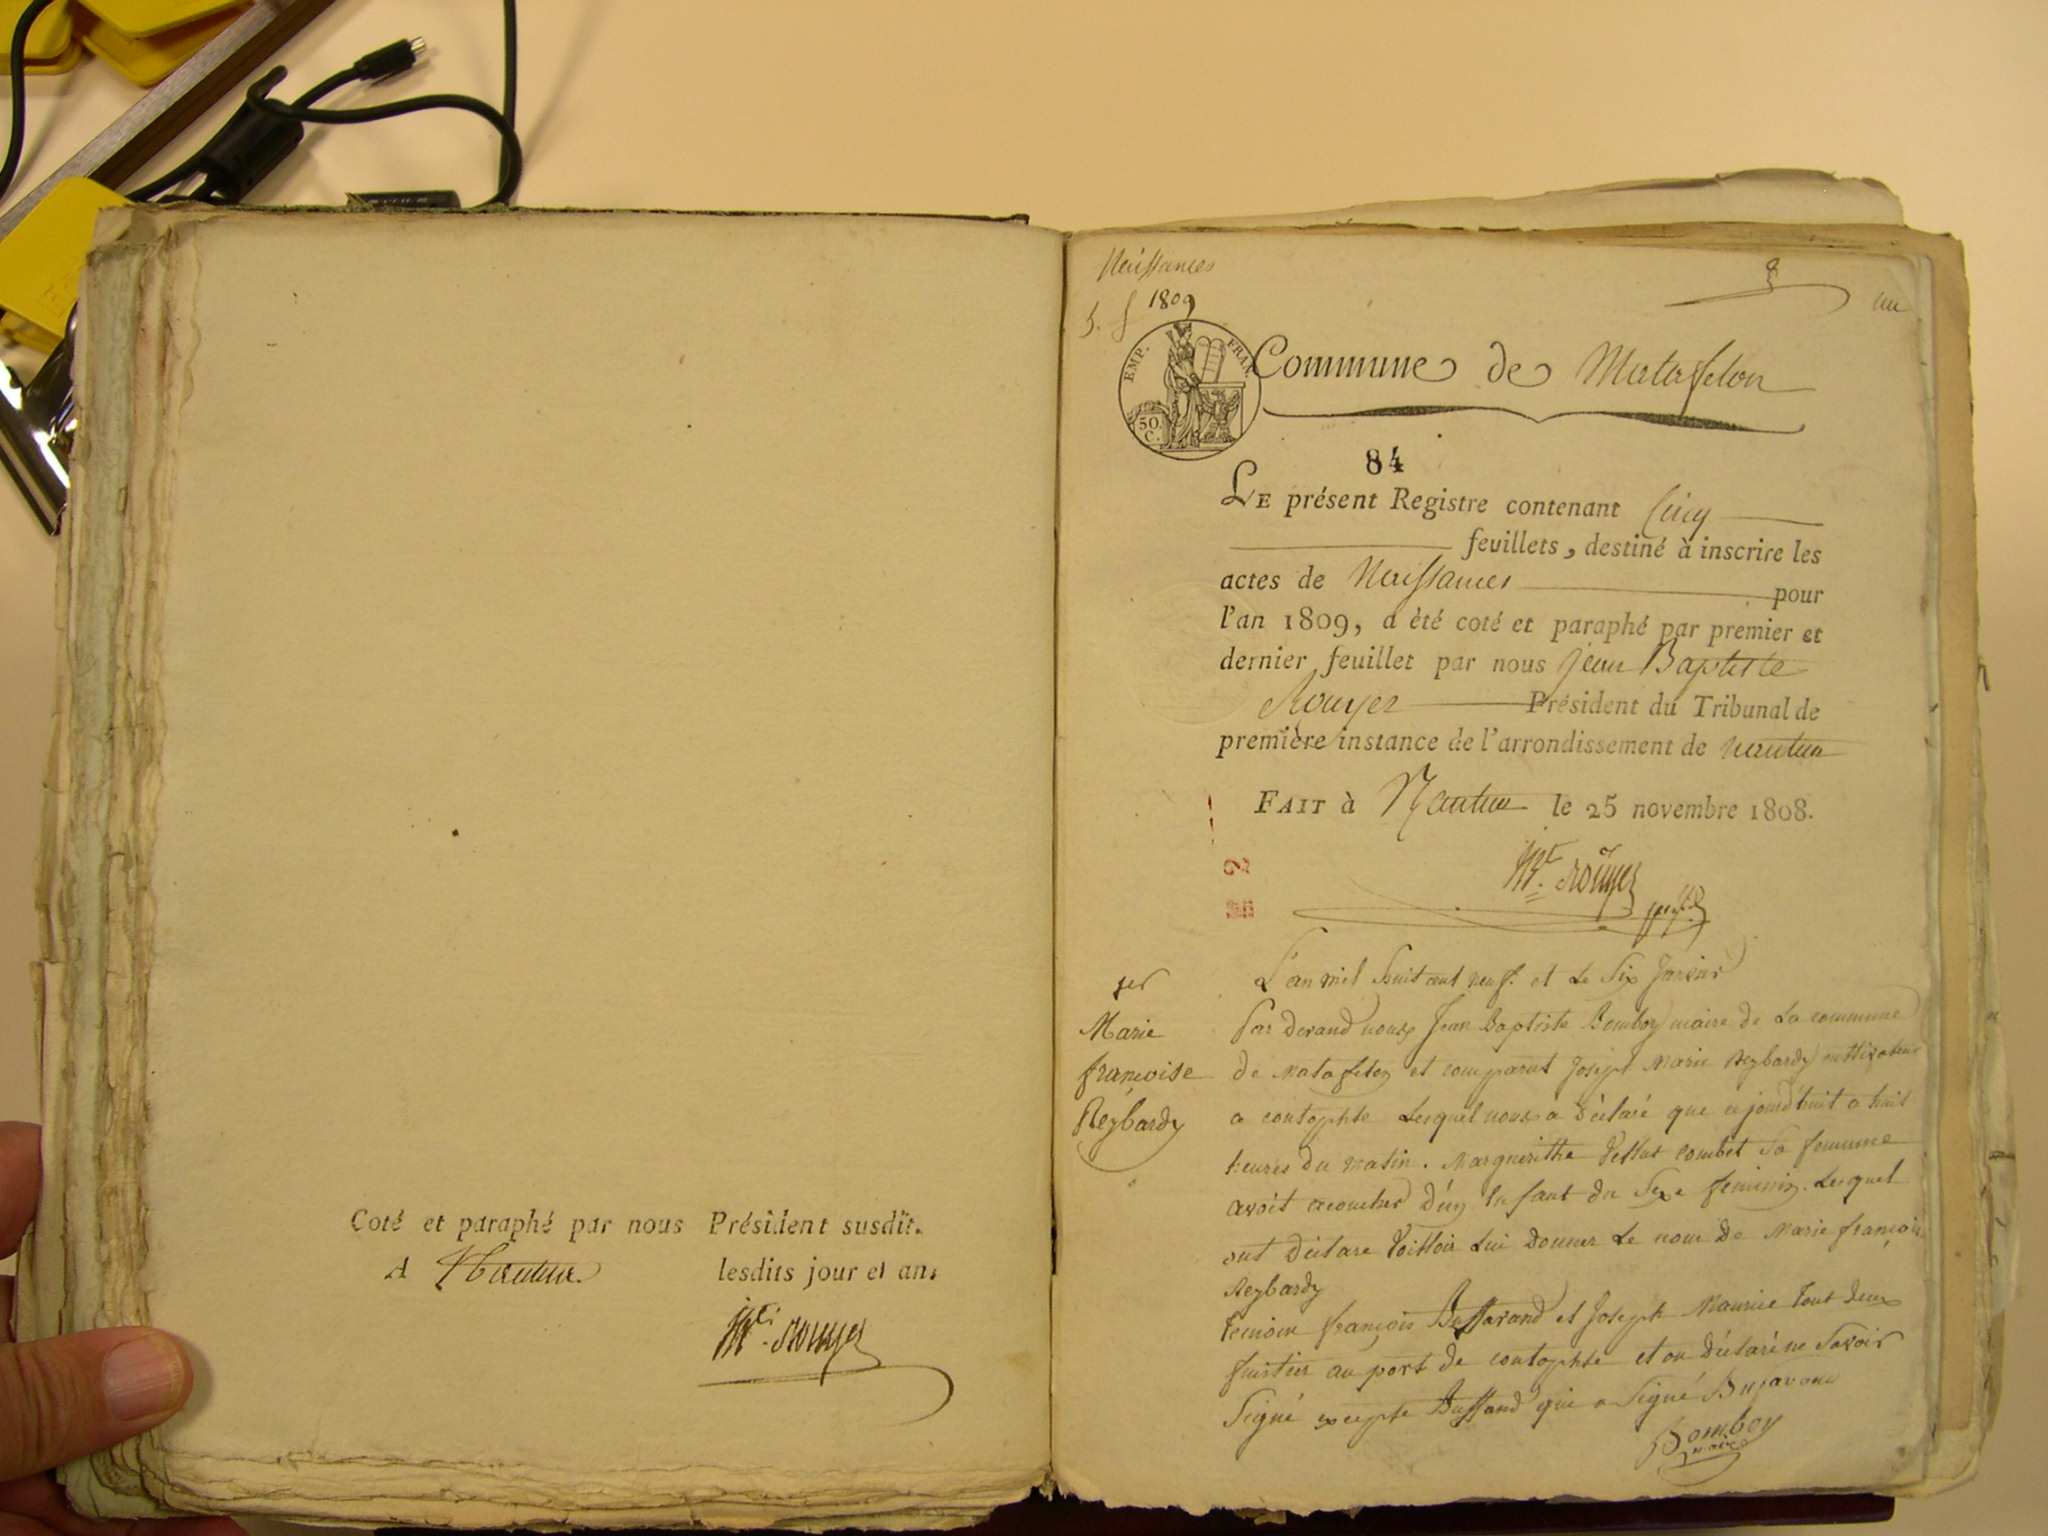 Coté et paraphé par nous Président susdit.
A Nantua lesdits jour et an.
Rouyer
Naissances
1809
5. f
8
un
EMP. FRAN.
50.
C.
Commune de Matafelon
84
LE présent Registre contenant Cinq
feuillets, destiné à inscrire les
actes de Naissances pour
l'an 1809, a été coté et paraphé par premier et
dernier feuillet par nous jean Baptiste
Rouyer Président du Tribunal de
première instance de l'arrondissement de nantua
FAIT à Nantua le 25 novembre 1808.
Rouyer
2
1er
Marie
françoise
Reybardy
L'an mil huit cent neuf. et Le Six Janvier
Par devand nous Jean Baptiste Bomboy maire de La commune
de matafelon et comparut Joseph Marie Reybardy culltivateur
a contophte Lesquel nous a déclaré que cejourd'huit a huit
heures du matin. Marguerithe Vellut Combet Sa femme
avoit acoucher d'un Enfant du Sexe feminin. Lesquel
ont déclare Voilloir Lui donner Le nom De Marie françoise
Reybardy
temoin françois Buffavand et Joseph Maurice tout deux
fustier au port de contophte et on déclaré ne Savoir
Signé excepte Buffand qui a Signé Bufavand
Bomboy
maire